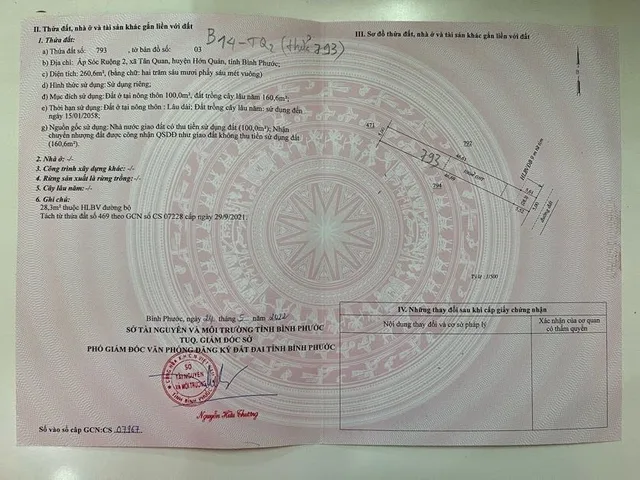 II. Thửa đất, nhà ở và tài sản khác gắn liền với đất
1. Thửa đất:
a) Thửa đất số: 793, tờ bản đồ số: 03
B14-TQ2 (thửa 793)
b) Địa chỉ: Ấp Sóc Ruộng 2, xã Tân Quan, huyện Hớn Quản, tỉnh Bình Phước;
c) Diện tích: 260,6m², (bằng chữ: hai trăm sáu mươi phẩy sáu mét vuông)
d) Hình thức sử dụng: Sử dụng riêng;
đ) Mục đích sử dụng: Đất ở tại nông thôn 100,0m²; đất trồng cây lâu năm 160,6m²;
e) Thời hạn sử dụng: Đất ở tại nông thôn : Lâu dài; Đất trồng cây lâu năm: sử dụng đến
ngày 15/01/2058;
g) Nguồn gốc sử dụng: Nhà nước giao đất có thu tiền sử dụng đất (100,0m²); Nhận
chuyển nhượng đất được công nhận QSDĐ như giao đất không thu tiền sử dụng đất
(160,6m²).
2. Nhà ở: -/-
3. Công trình xây dựng khác: -/-
4. Rừng sản xuất là rừng trồng: -/-
5. Cây lâu năm: -/-
6. Ghi chú:
28,3m² thuộc HLBV đường bộ
Tách từ thửa đất số 469 theo GCN số CS 07228 cấp ngày 29/9/2021.
Bình Phước, ngày 24 tháng 5 năm 2022
SỞ TÀI NGUYÊN VÀ MÔI TRƯỜNG TỈNH BÌNH PHƯỚC
TUQ. GIÁM ĐỐC SỞ
PHÓ GIÁM ĐỐC VĂN PHÒNG ĐĂNG KÝ ĐẤT ĐAI TỈNH BÌNH PHƯỚC
SỞ
TÀI NGUYÊN
VÀ MÔI TRƯỜNG
TỈNH BÌNH PHƯỚC
Nguyễn Hữu Thương
Số vào sổ cấp GCN:CS 07967
III. Sơ đồ thửa đất, nhà ở và tài sản khác gắn liền với đất
471
792
793
794
HLBV ĐB
đường đất
Tỷ lệ 1/500
IV. Những thay đổi sau khi cấp giấy chứng nhận
Nội dung thay đổi và cơ sở pháp lý
Xác nhận của cơ quan
có thẩm quyền